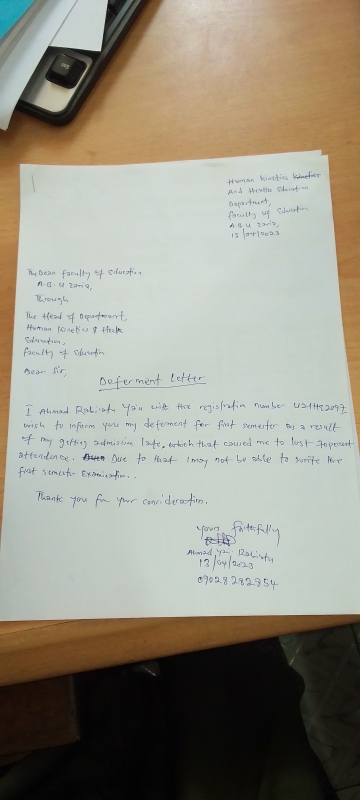 Human Kinetics
And Health Education
Department,
Faculty of Education
A.B.U Zaria,
13/04/2023
The Dean Faculty of Education
A.B.U Zaria,
Through
The Head of Department,
Human Kinetics & Health
Education,
Faculty of Education
Dear Sir,
Deferment Letter
I Ahmad Rabiatu Y'au with the registration number
wish to inform you my deferment for first semester as a result
of my getting admission late, which that caused me to lost 70percent
attendance. Due to that I may not be able to write the
first semester Examination.
Thank you for your consideration.
Yours faithfully
Ahmad Y'au Rabiatu
13/04/2023
09028282854